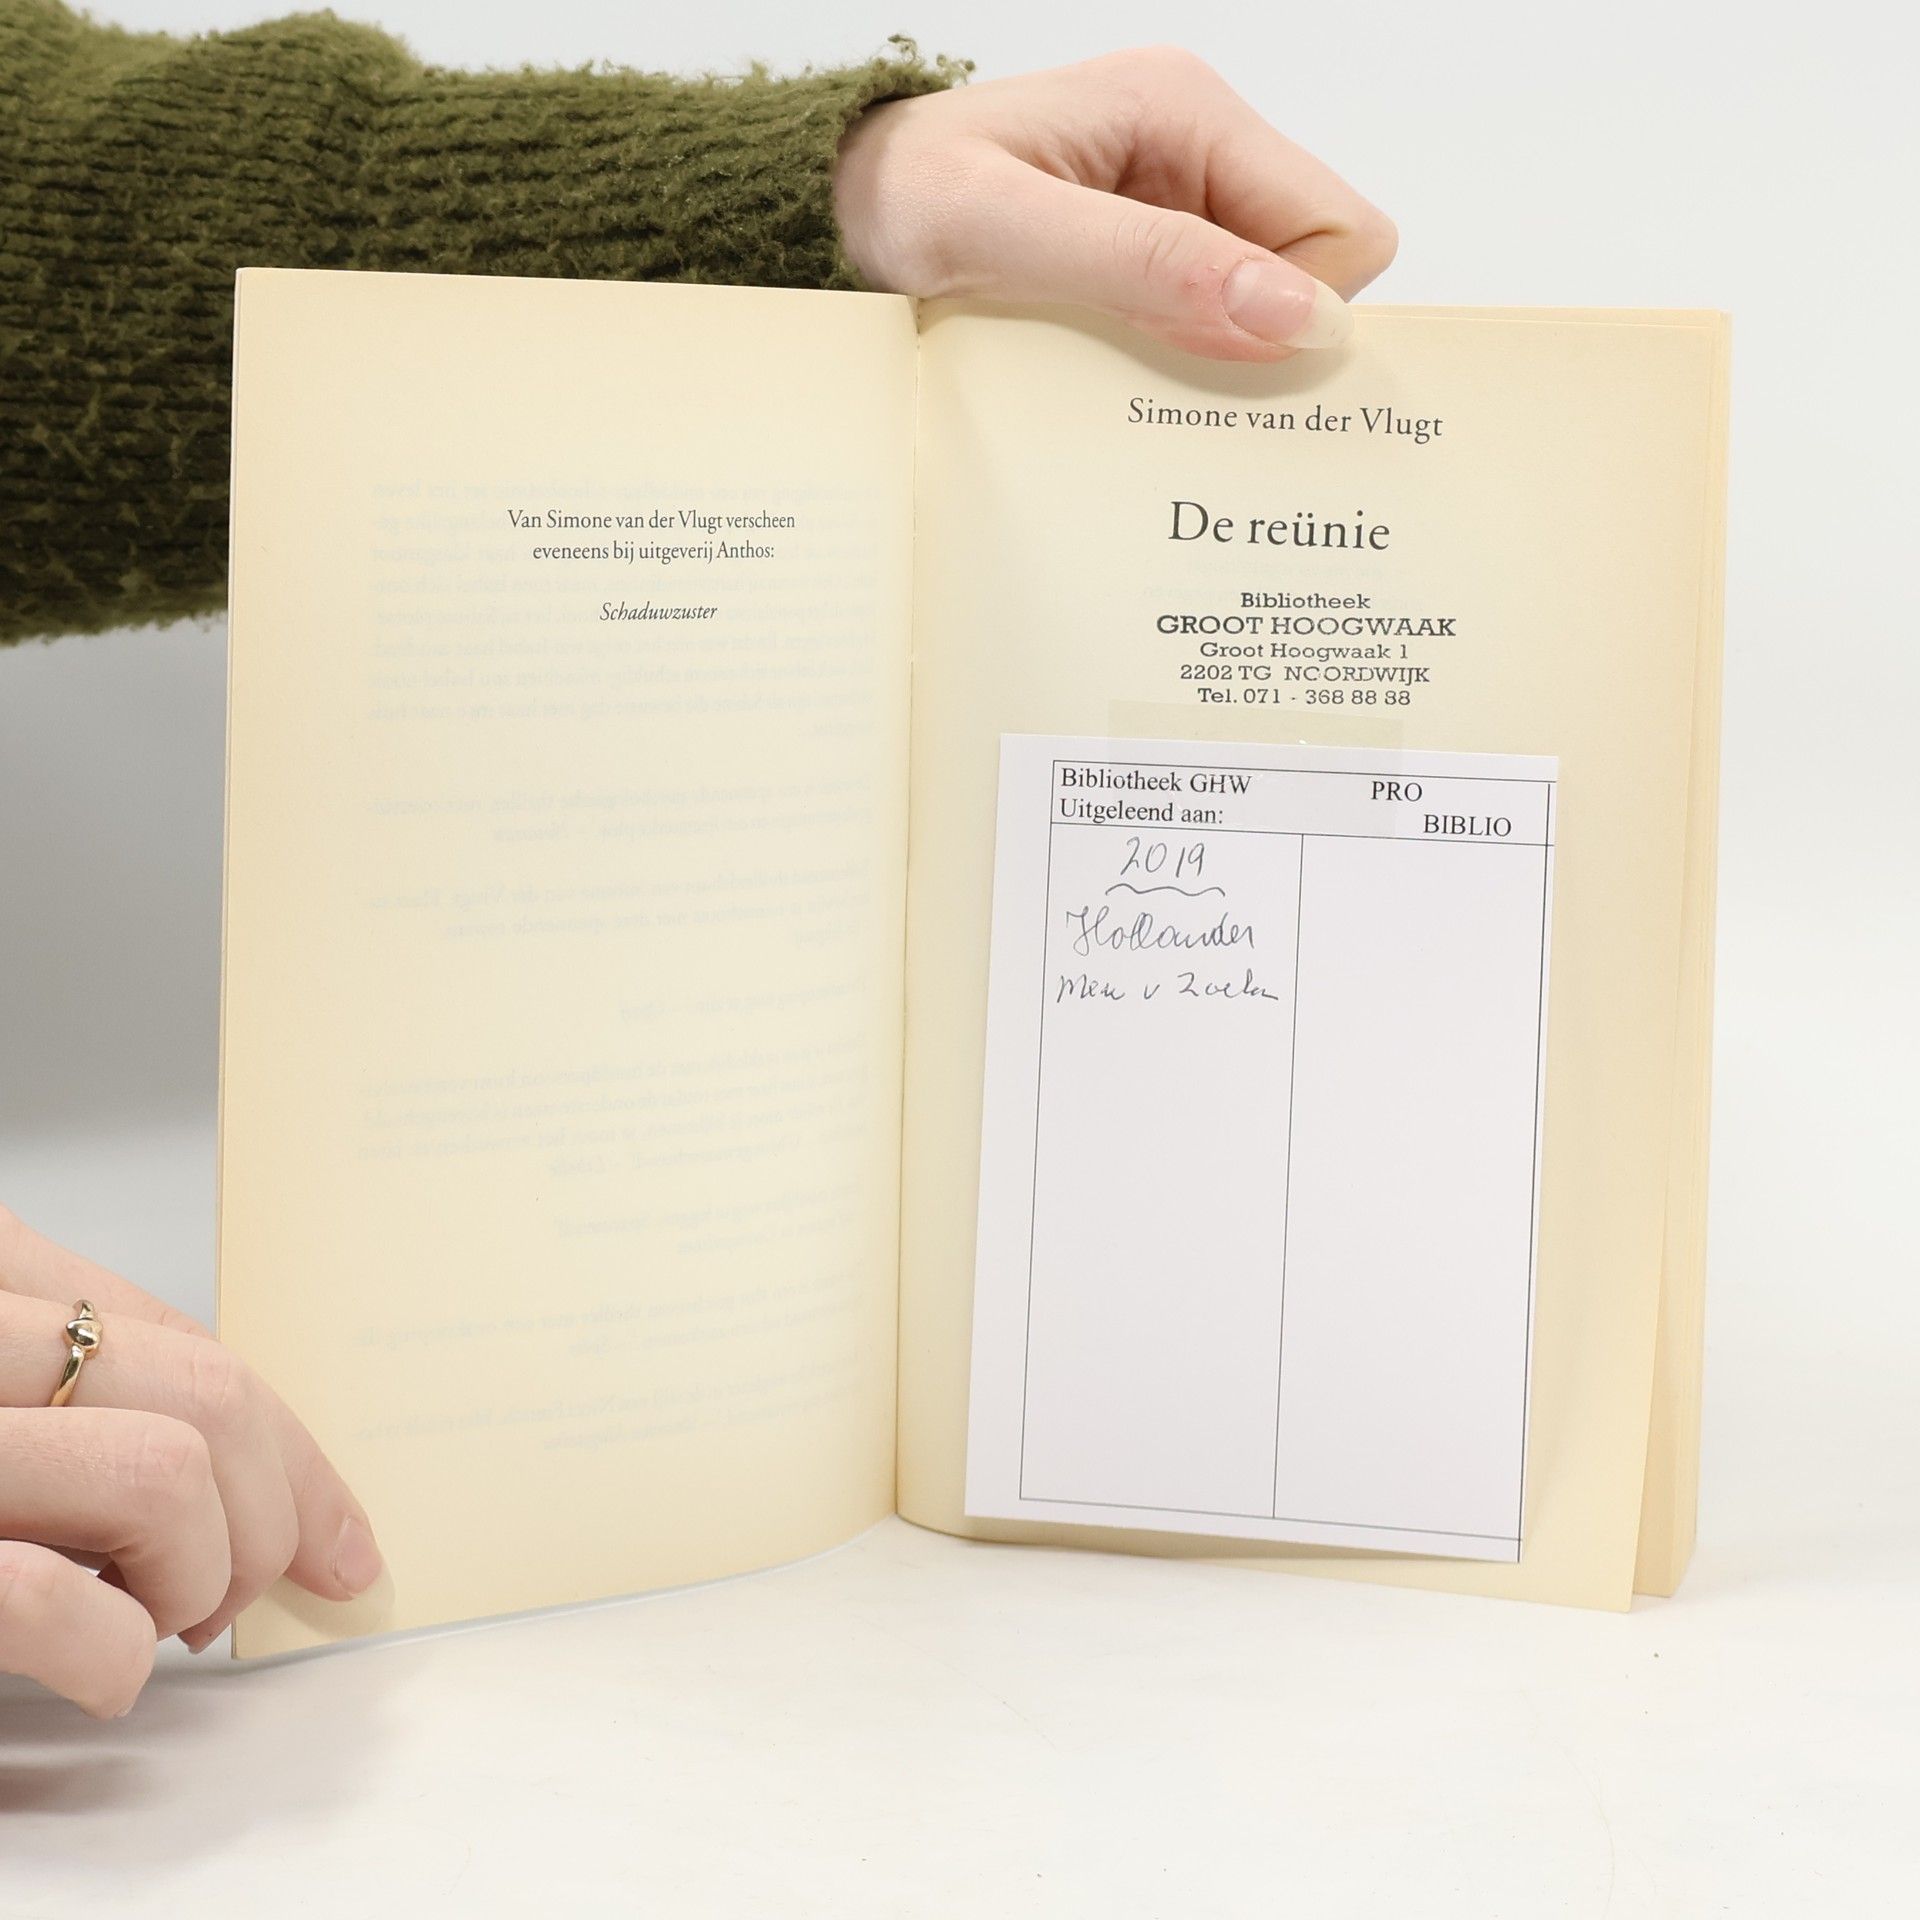 Van Simone van der Vlugt verscheen
eveneens bij uitgeverij Anthos:
Schaduwzuster
Simone van der Vlugt
De reünie
Bibliotheek
GROOT HOOGWAAK
Groot Hoogwaak 1
2202 TG NOORDWIJK
Tel. 071 - 368 88 88
Bibliotheek GHW PRO
Uitgeleend aan: BIBLIO
2019
Hollander
v